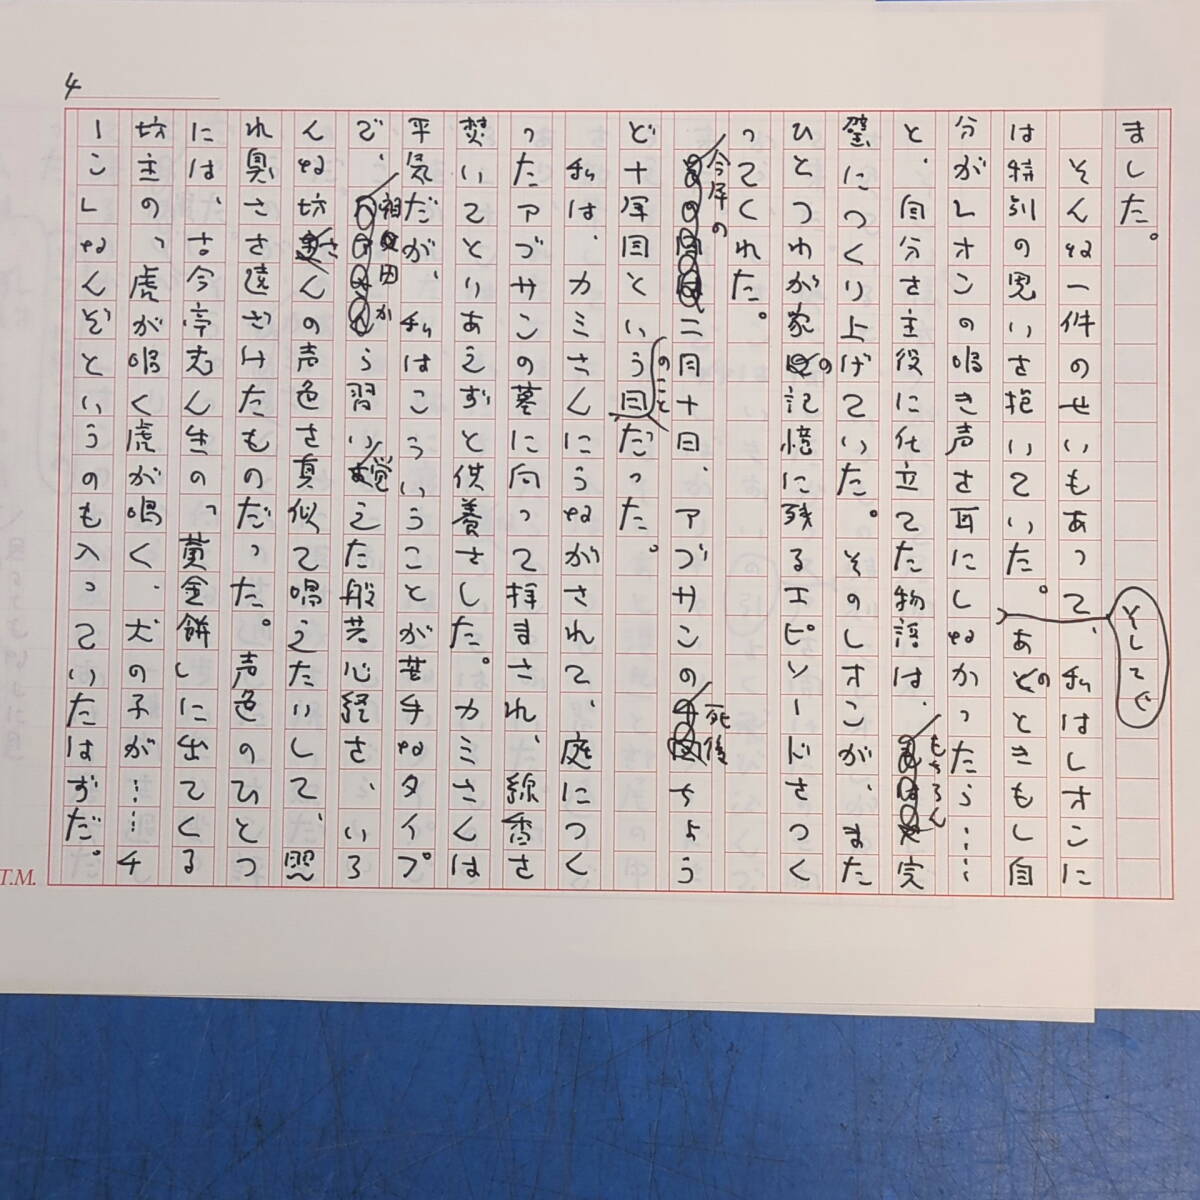 4
ました。
そんな一件のせいもあって、私はレオンに
は特別の思いを抱いていた。そして、あのときもし自
分がレオンの鳴き声を耳にしなかったら……
と、自分を主役に仕立てた物語は、もちろん完
璧につくり上げていた。そのレオンが、また
ひとつわが家の記憶に残るエピソードをつく
ってくれた。
今年の二月十日、アヅサンの死後ちょう
ど十年目という日のことだった。
私は、カミさんにうながされて、庭につく
ったアヅサンの墓に向って拝まされ、線香を
焚いてとりあえずと供養をした。カミさんは
平気だが、私はこういうことが苦手なタイプ
で、祖父母から習い覚えた般若心経を、いろ
んな坊さんの声色を真似て唱えたりして、照
れ臭さを遠ざけたものだった。声色のひとつ
には、古今亭志ん生の、黄金餅に出てくる
坊主の、虎が鳴く虎が鳴く、犬の子が……チ
ーンなんぞというのも入っていたはずだ。
T.M.